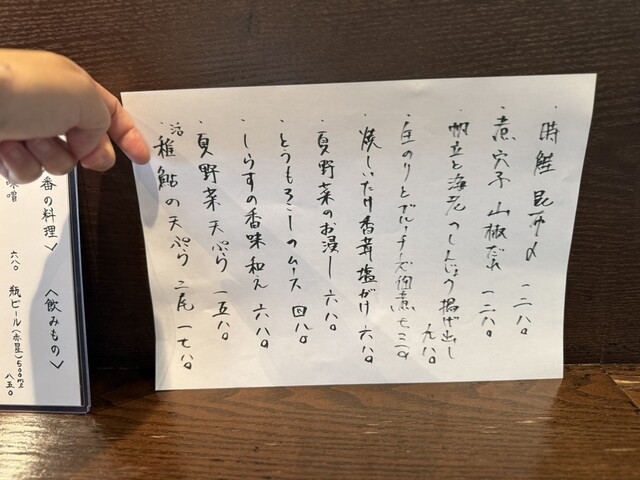 ・時鮭 昆布〆 一二八〇
・煮穴子 山椒だれ 一二八〇
・帆立と海老のしんじょう揚げ出し
九八〇
・生のりとブルーチーズ佃煮 七三〇
・焼しいたけ香茸塩がけ 六八〇
・夏野菜のお浸し 六八〇
・とうもろこしのムース 四八〇
・しらすの香味和え 六八〇
・夏野菜天ぷら 一五八〇
・活稚鮎の天ぷら 二尾 一七八〇
番の料理〉
味噌 六八〇
〈飲みもの〉
瓶ビール(赤星)500ml
八五〇